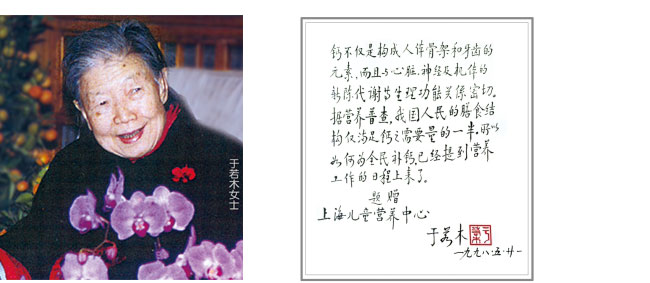 于若木女士
钙不仅是构成人体骨架和牙齿的
元素，而且与心脏、神经及机体的
新陈代谢等生理功能关系密切。
据营养普查，我国人民的膳食结
构仅满足钙之需要量的一半，所以
如何为全民补钙，已经提到营养
工作的日程上来了。
题赠
上海儿童营养中心
于若木
一九九八·五·廿一